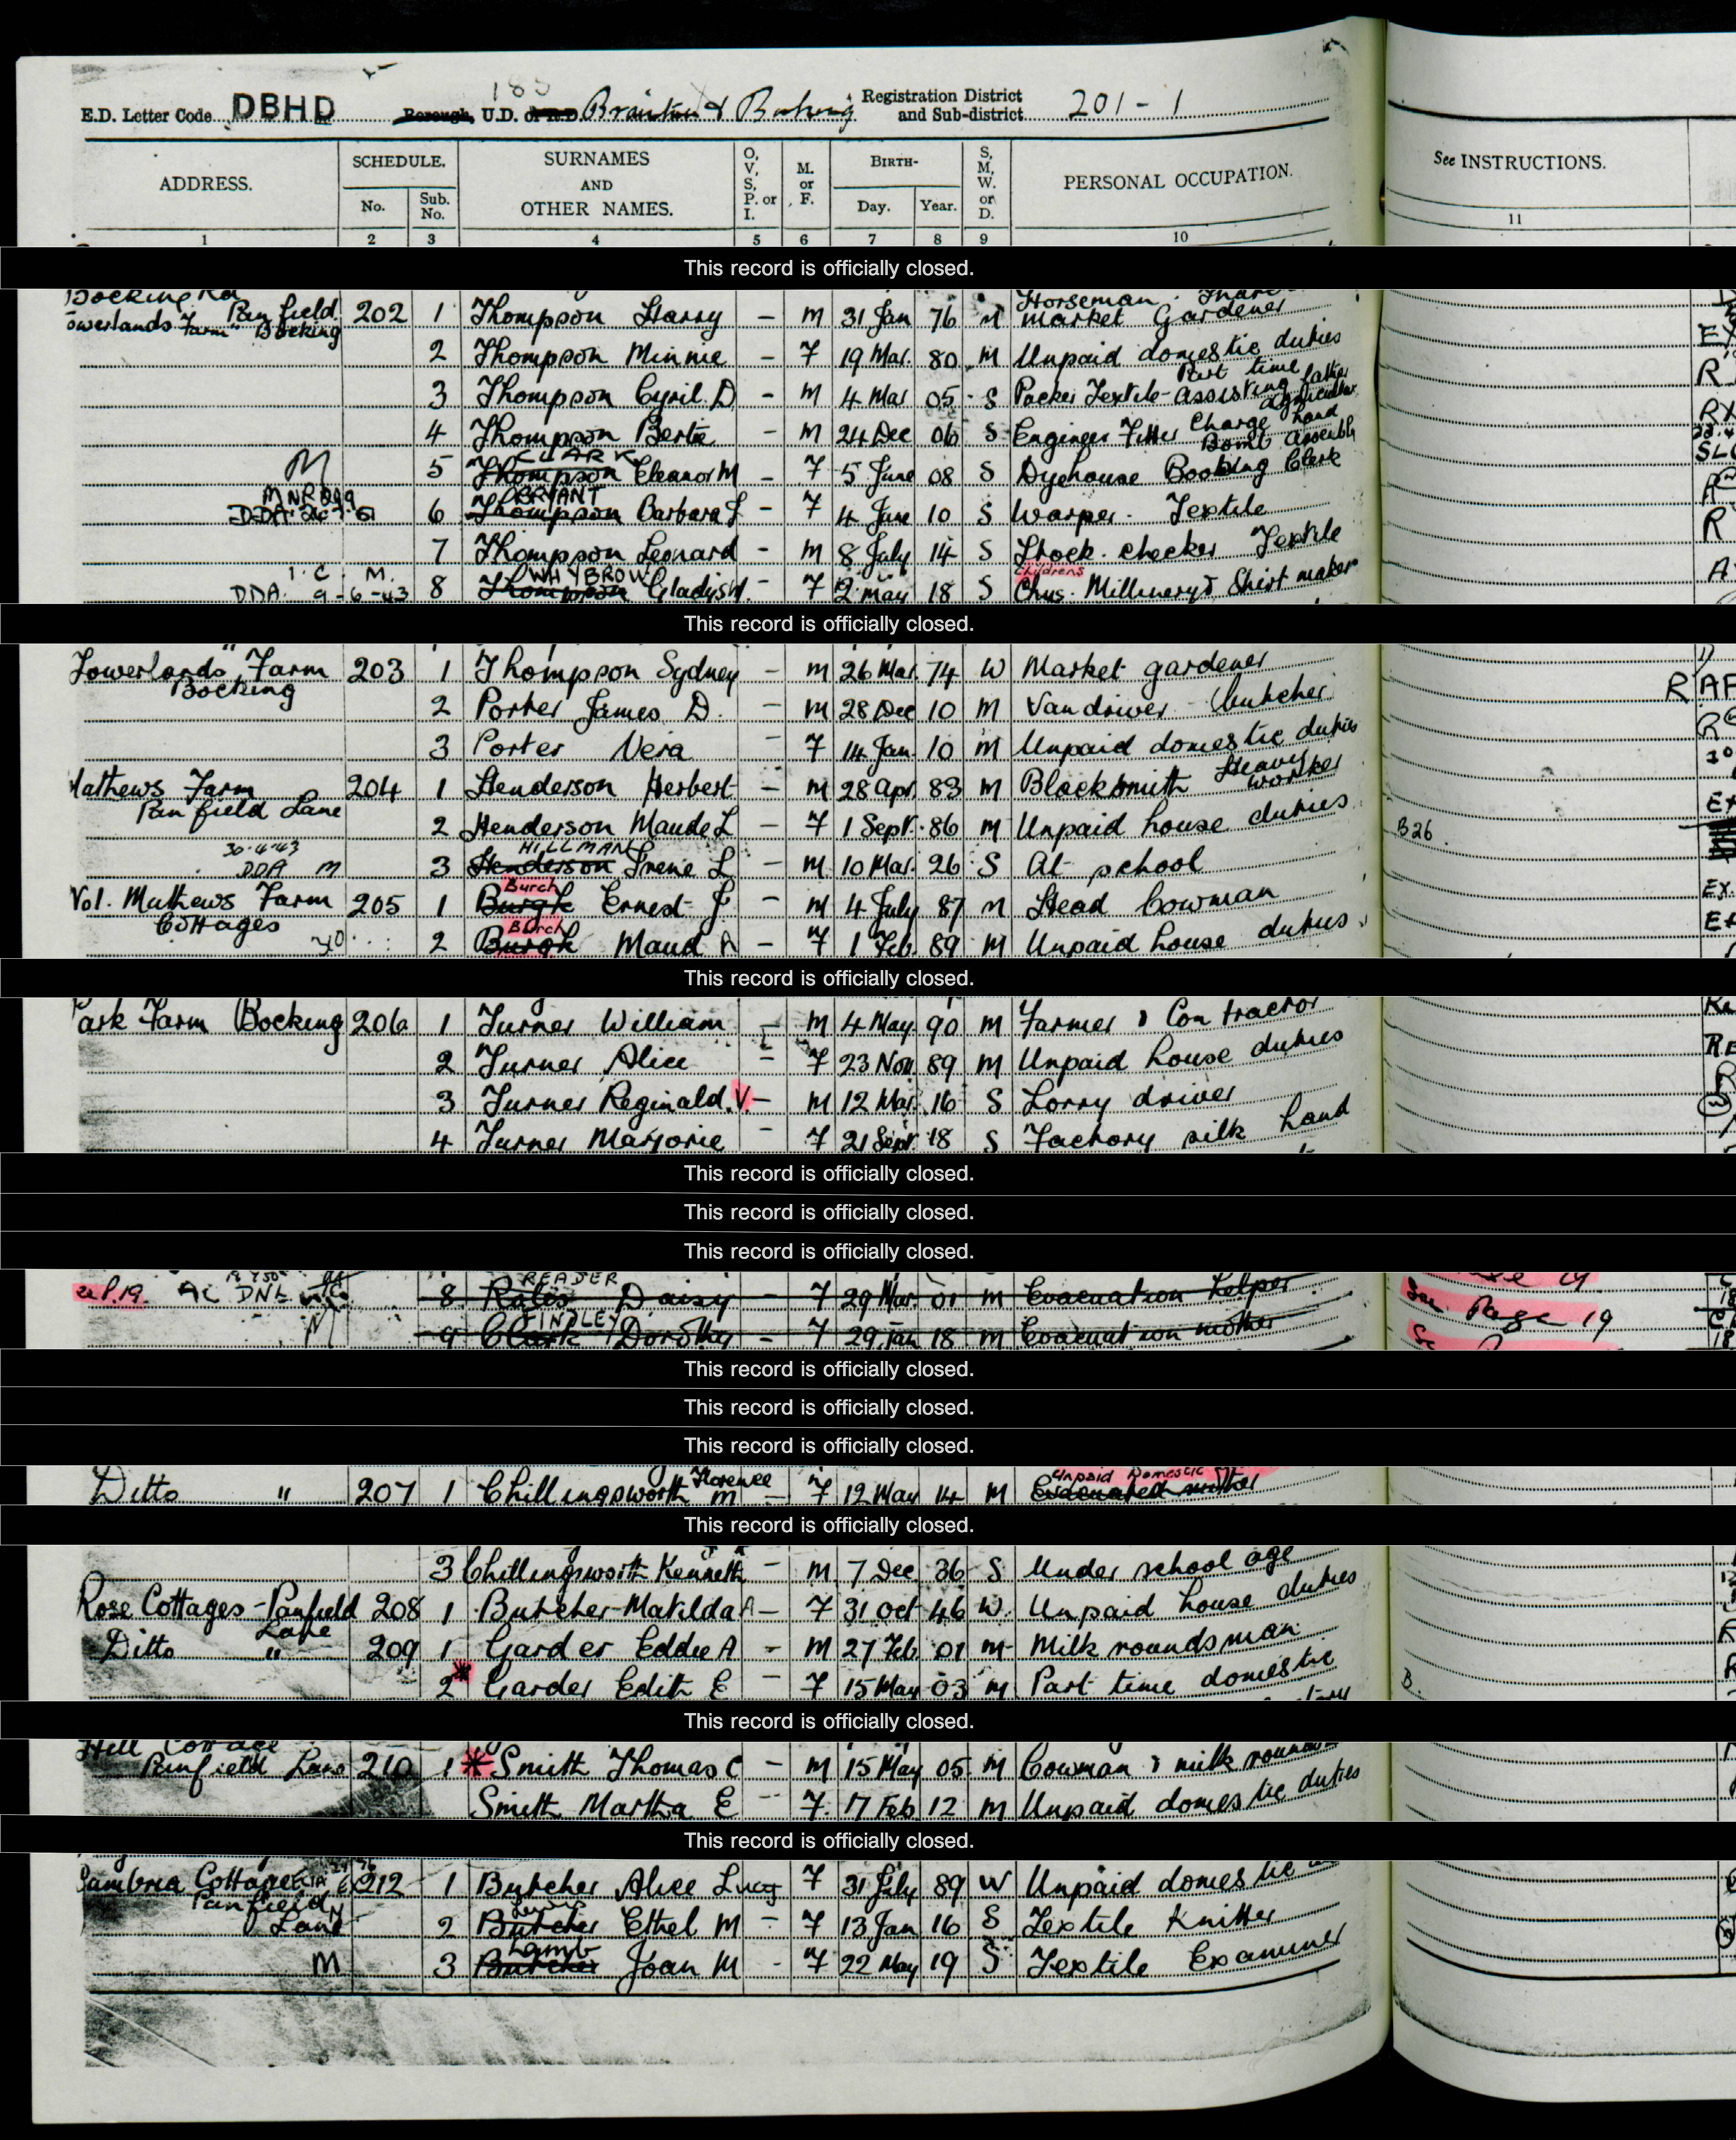 185
E.D. Letter Code DBHD Borough, U.D. or R.D. Braintree & Bocking Registration District and Sub-district 201-1
ADDRESS. SCHEDULE. No. Sub. No. SURNAMES AND OTHER NAMES. O, V, S, P. or I. M. or F. BIRTH- Day. Year. S, M, W. or D. PERSONAL OCCUPATION. See INSTRUCTIONS.
1 2 3 4 5 6 7 8 9 10 11
This record is officially closed.
Bocking Rd Panfield Horseman
Towerlands Farm" Bocking 202 1 Thompson Harry - M 31 Jan 76 M Market Gardener
2 Thompson Minnie - F 19 Mar. 80 M Unpaid domestic duties
3 Thompson Cyril. D - M 4 Mar 05 S Packer Textile - Part time assisting father
4 Thompson Bertie - M 24 Dec 06 S Engineer Fitter Charge hand Bomb assembly
M 5 Thompson CLARK Eleanor M - F 5 June 08 S Dyehouse Booking Clerk
6 Thompson BRYANT Barbara - F 4 June 10 S Warper. Textile
7 Thompson Leonard - M 8 July 14 S Stock. checker Textile
DDA. 9-6-43 M. 8 Thompson WHYBROW Gladys - F 2 May 18 S Chns. Childrens Millinery & Shirt maker
This record is officially closed.
Towerlands" Farm Bocking 203 1 Thompson Sydney - M 26 Mar 74 W Market gardener
2 Porter James D. - M 28 Dec 10 M Van driver butcher
3 Porter Vera - F 14 Jan. 10 M Unpaid domestic duties
Mathews Farm Panfield Lane 204 1 Henderson Herbert - M 28 Apr. 83 M Blacksmith Heavy worker
2 Henderson Maude L - F 1 Sept. 86 M Unpaid house duties B26
30-4-43 DDA M 3 Henderson HILLMAN Irene L - M 10 Mar. 26 S At school
Vol. Mathews Farm Cottages 205 1 Burgk Burch Ernest J - M 4 July 87 M Head Cowman
2 Burgk Burch Maud A - F 1 Feb. 89 M Unpaid house duties
This record is officially closed.
Park Farm Bocking 206 1 Turner William - M 4 May 90 M Farmer & Contractor
2 Turner Alice - F 23 Nov. 89 M Unpaid house duties
3 Turner Reginald. V - M 12 Mar. 16 S Lorry driver
4 Turner Marjorie - F 21 Sept. 18 S Factory silk hand
This record is officially closed.
This record is officially closed.
This record is officially closed.
8 READER Daisy - F 29 Mar. 01 M Evacuation helper See Page 19
9 Clark FINDLEY Dorothy - F 29 Jan 18 M Evacuation mother
This record is officially closed.
This record is officially closed.
This record is officially closed.
Ditto " 207 1 Chillingsworth Florence M - F 12 May 14 M Evacuated mother Unpaid Domestic
This record is officially closed.
3 Chillingsworth Kenneth - M 7 Dec 36 S Under school age
Rose Cottages - Panfield Lane 208 1 Butcher Matilda A - F 31 Oct 46 W. Unpaid house duties
Ditto " 209 1 Garder Eddie A - M 27 Feb 01 M Milk roundsman
2 * Garder Edith E - F 15 May 03 M Part time domestic B.
This record is officially closed.
Hill Cottage Panfield Lane 210 1 * Smith Thomas C - M 15 May 05 M Cowman & milk
Smith Martha E - F. 17 Feb 12 M Unpaid domestic duties
This record is officially closed.
Cambria Cottage Panfield Lane 212 1 Butcher Alice Lucy F 31 July 89 W Unpaid domestic
2 Butcher Ethel M - F 13 Jan 16 S Textile Knitter
M 3 Butcher Lamb Joan M - F 22 May 19 S Textile Examiner